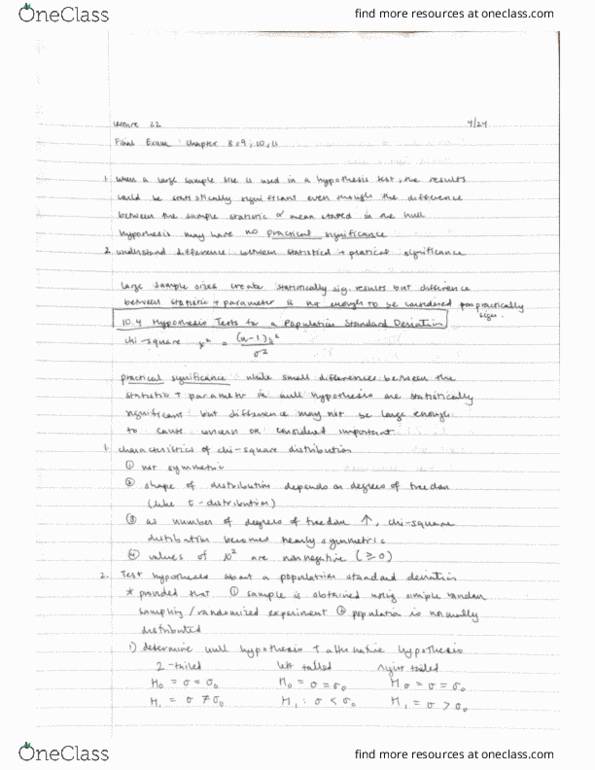 OneClass
find more resources at oneclass.com
Lecture 22 4/24
Final Exam: Chapter 8, 9, 10, 11
1. When a large sample size is used in a hypothesis test, the results
could be statistically significant even though the difference
between the sample statistic & mean stated in the null
hypothesis may have no practical significance
2. understand difference between statistical + pratical significance
large sample sizes create statistically sig. results but difference
between statistic + parameter is not enough to be considered practically
signi
10.4 Hypothesis Tests for a Population Standard Deviation
chi-square x² = (n-1)s² / σ²
practical significance: while small differences between the
statistic + parameter in null hypothesis are statistically
significant but difference may not be large enough
to cause concern or considered important
1. characteristics of chi-square distribution
① not symmetric
② shape of distribution depends on degrees of freedom
(like t-distribution)
③ as number of degrees of freedom ↑, chi-square
distribution becomes nearly symmetric
④ values of x² are nonnegative (≥0)
2. Test hypotheses about a population standard deviation
* provided that ① sample is obtained using simple random
sampling / randomized experiment ② population is normally
distributed
1) determine null hypothesis + alternative hypothesis
2-tailed left tailed right tailed
H₀ = σ = σ₀ H₀ = σ = σ₀ H₀ = σ = σ₀
H₁ = σ ≠ σ₀ H₁ : σ < σ₀ H₁ = σ > σ₀
OneClass
find more resources at oneclass.com